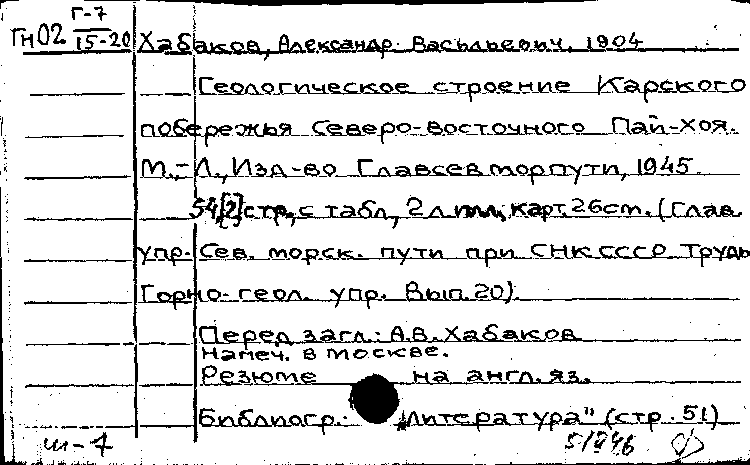 Г-7
ГнО2 15-20 Хабаков, Александр Васильевич, 1904
Геологическое строение Карского
побережья Северо-Восточного Пай-Хоя.
М.-Л., Изд-во Главсевморпути, 1945.
54[2] стр. с табл., 2 л. илл., карт. 26 см. (Глав.
упр. Сев. морск. пути при СНК СССР Труды
Горно-геол. упр. Вып. 20).
Перед загл.: А.В. Хабаков
Напеч. в Москве.
Резюме на англ. яз.
Библиогр.: „Литература" (стр. 51)
ш-7